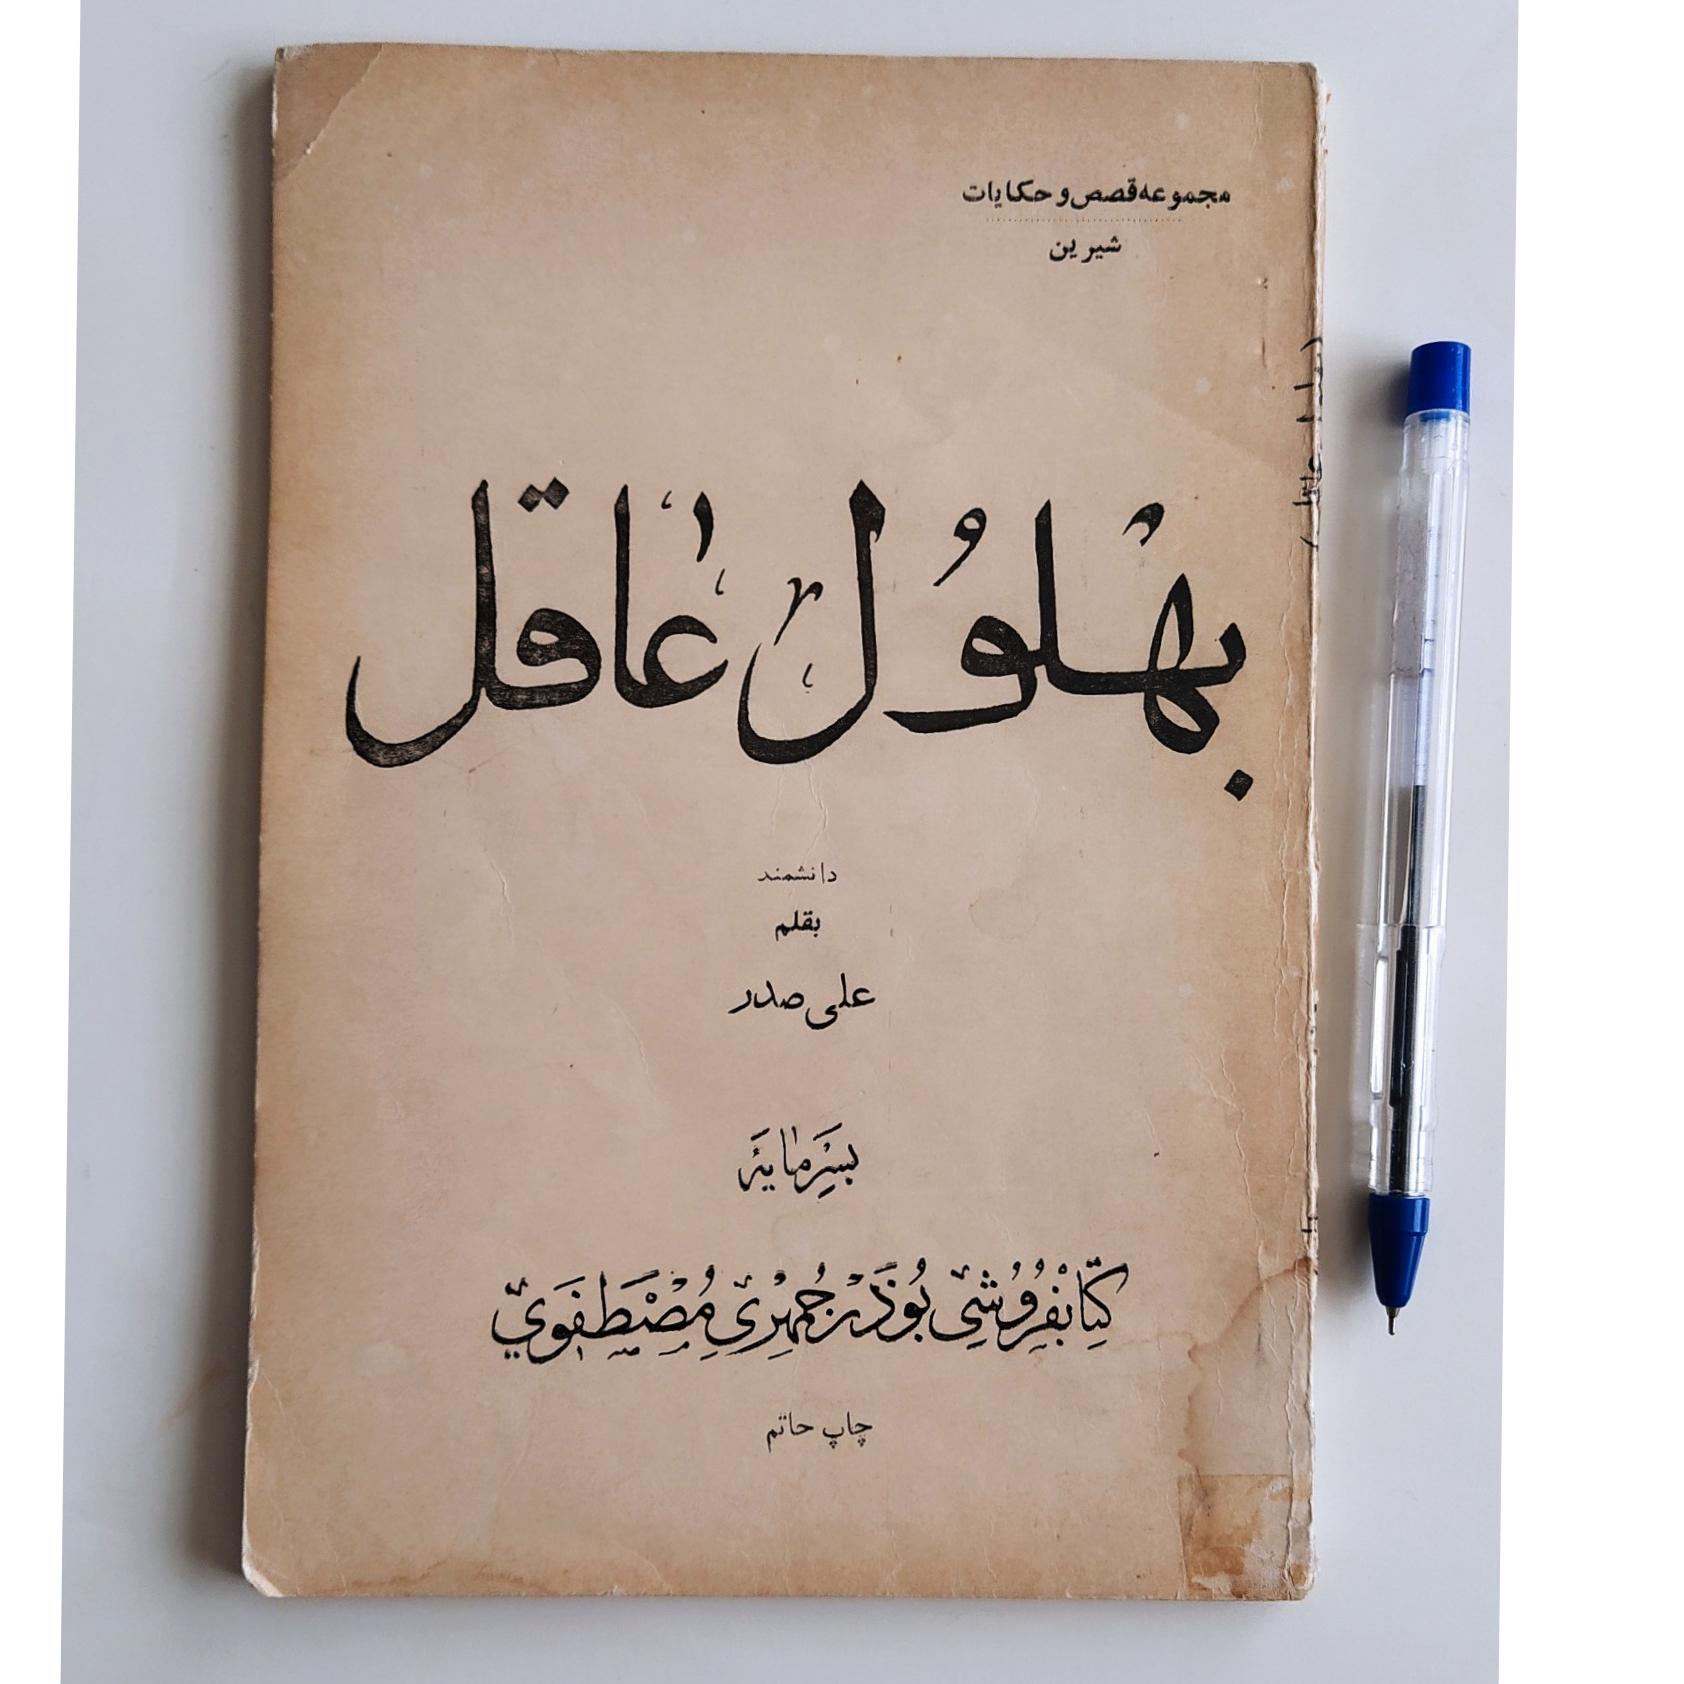 مجموعه قصص و حکایات
شیرین
بهْلوُل عٰاقل
دانشمند
بقلم
علی صدر
بسَرمٰایَۀ
کتابفُروُشیِ بُوذَرْجُمهْریِ مُصْطَفَوي
چاپ حاتم